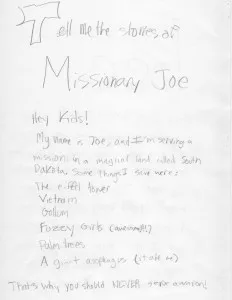 Tell me the stories of
Missionary Joe
Hey Kids!
My name is Joe, and I'm serving a
mission in a magical land called South
Dakota. Some things I have here:
The eiffel tower
Vietnam
Gollum
Fuzzy Gurls
Palm trees
A giant (it ate me)
That's why you should NEVER serve a mission!